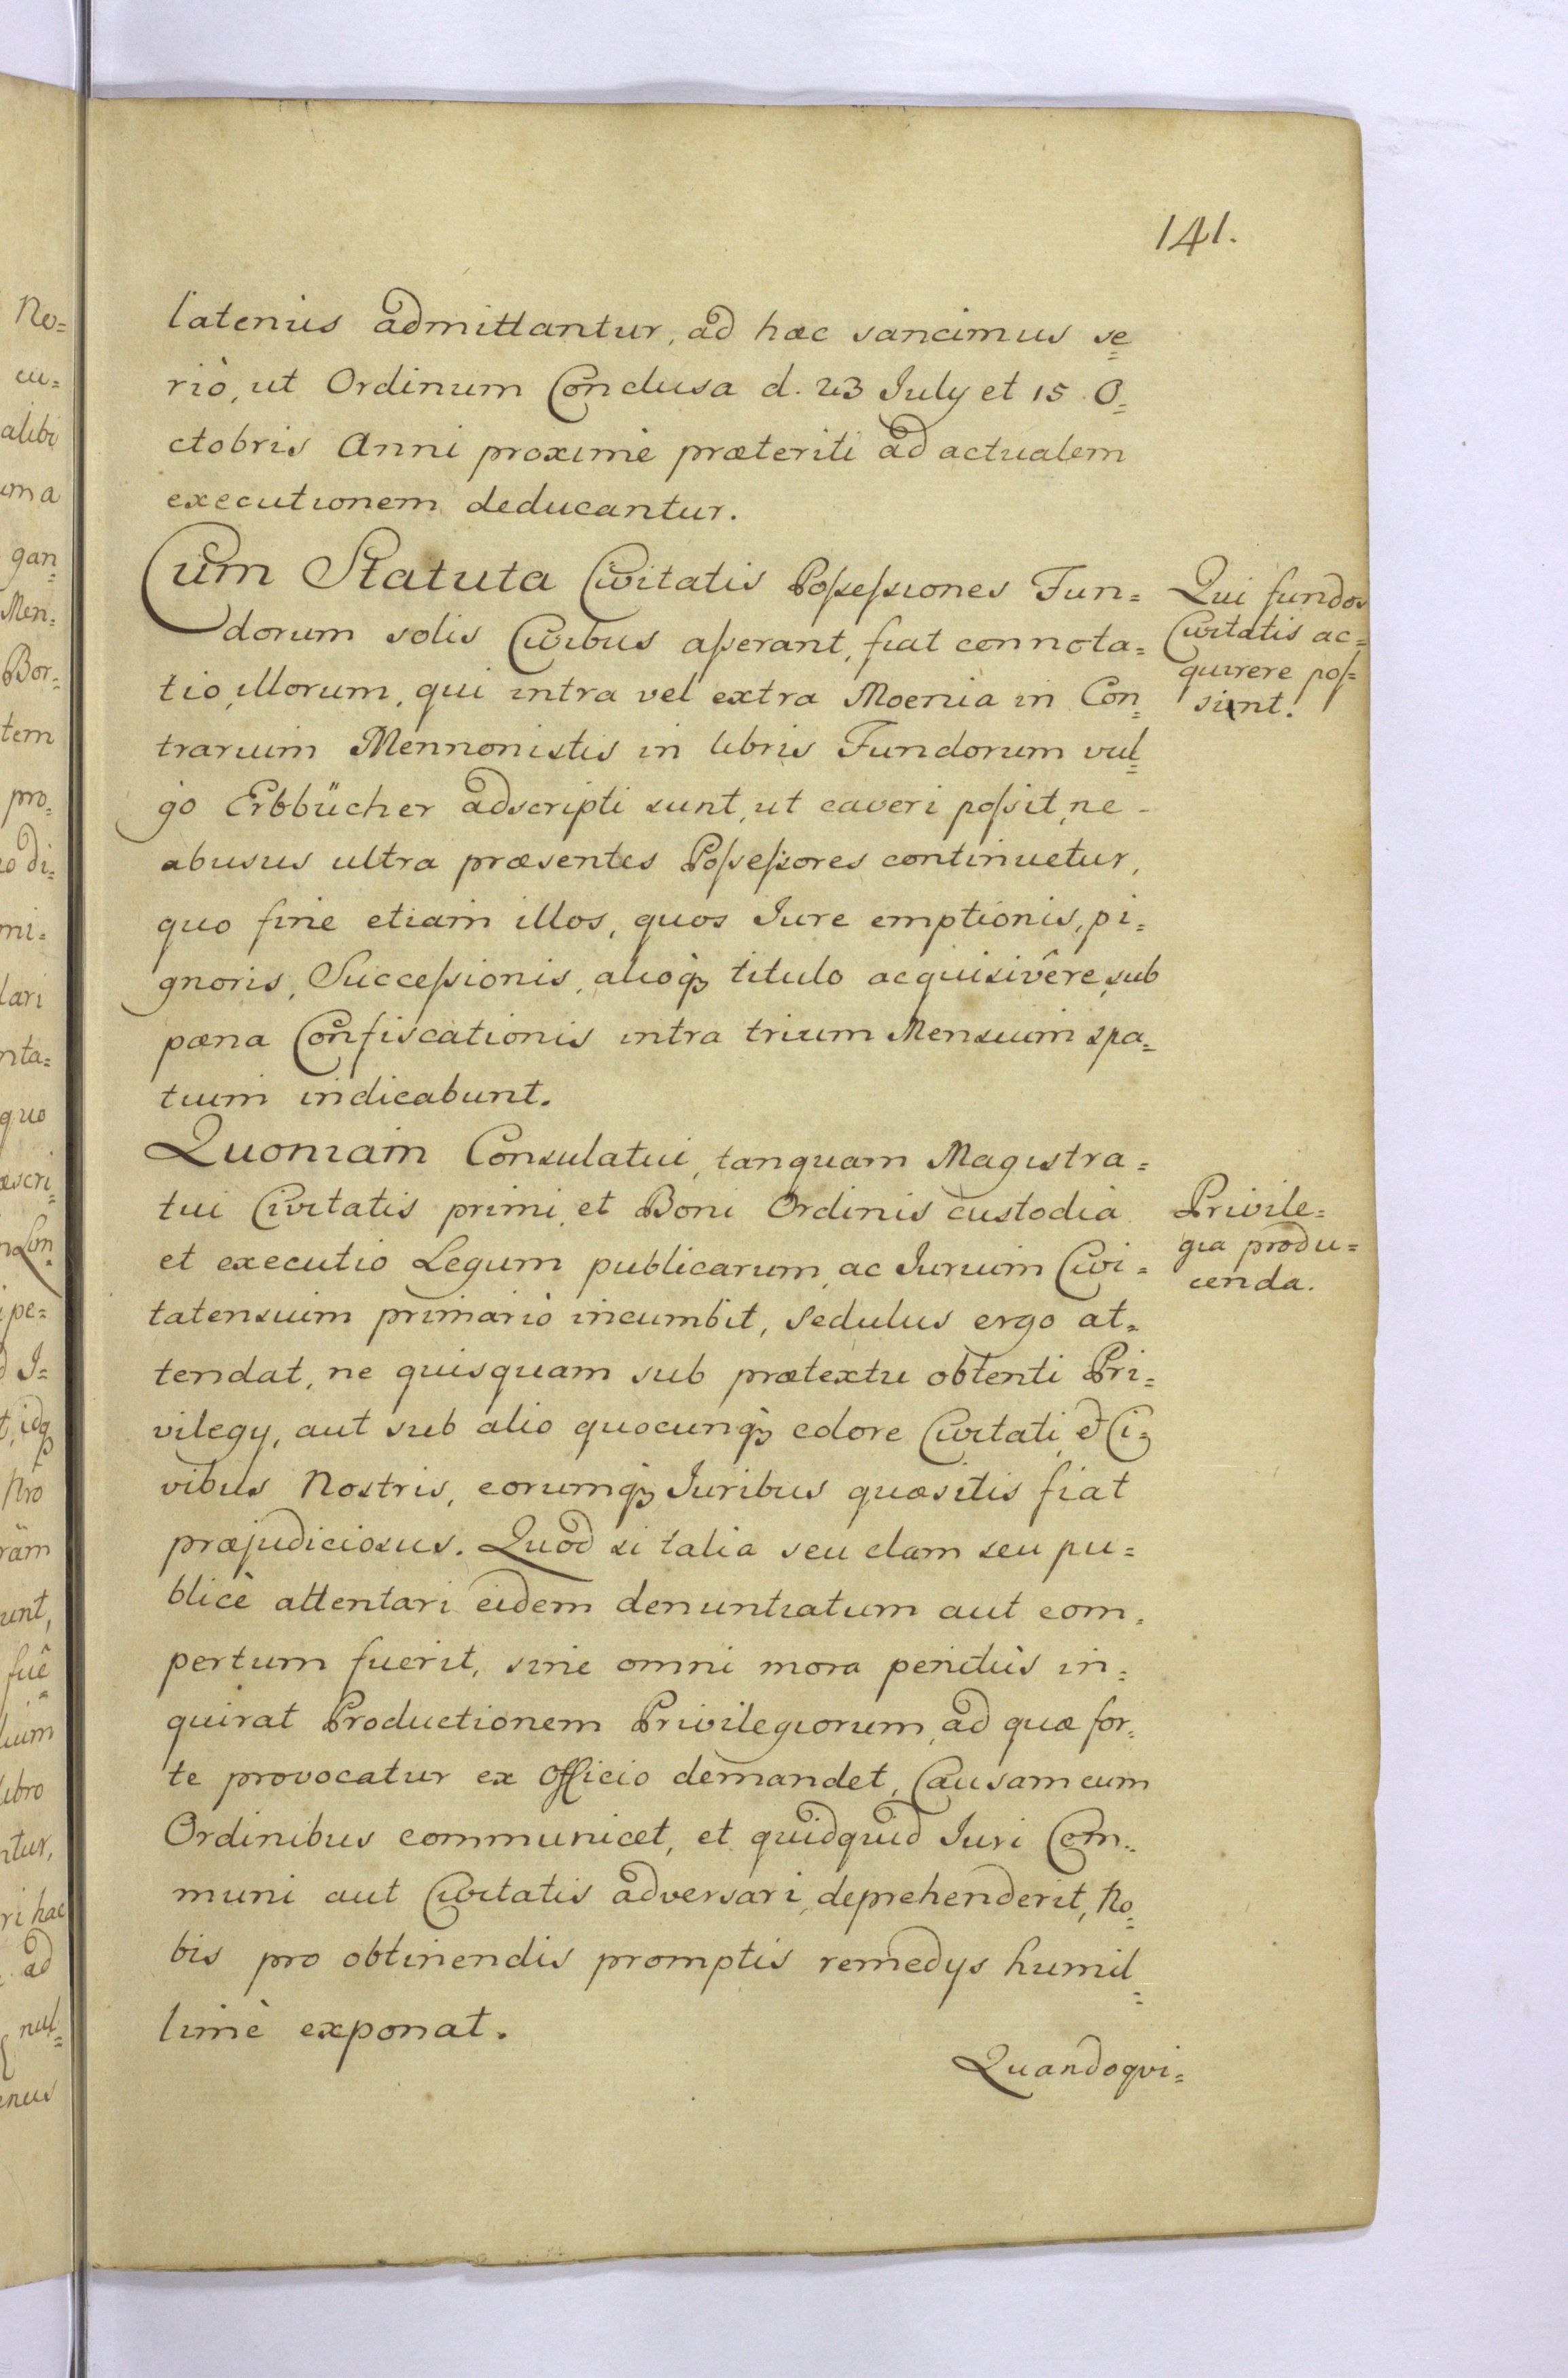 141.
latenus admittantur, ad hæc sancimus se=
riò, ut Ordinum Conclusa d. 23 July et 15 O=
ctobris Anni proximè præteriti ad actualem
executionem deducantur.
Cum Statuta Civitatis Possessiones Fun=
dorum solis Civibus asserant, fiat connota=
tio, illorum, qui intra vel extra Moenia in Con=
trarium Mennonistis in libris Fundorum vul=
go Erbbücher adscripti sunt, ut caveri possit, ne
abusus ultra præsentes Possessores continuetur,
quo fine etiam illos, quos Jure emptionis, pi=
gnoris, Successionis, alioq3 titulo acquisivêre, sub
pæna Confiscationis intra trium Mensium spa=
tium indicabunt.
Qui fundos
Civitatis ac=
quirere pos=
sunt.
Quoniam Consulatui, tanquam Magistra=
tui Civitatis primi, et Boni Ordinis custodia
et executio Legum publicarum, ac Jurium Civi=
tatensium primariò incumbit, Sedulus ergo at=
tendat, ne quisquam sub prætextu obtenti Pri=
vilegy, aut sub alio quocunq3 colore Civitati, et Ci=
vibus Nostris, eorumq3 Juribus quæsitis fiat
præjudiciosus. Quod si talia seu clam seu pu=
blicè attentari eidem denuntiatum aut com=
pertum fuerit, sine omni mora penitùs in=
quirat Productionem Privilegiorum, ad quæ for=
te provocatur ex Officio demandet, Causam cum
Ordinibus communicet, et quidquid Juri Com=
muni aut Civitatis adversari, deprehenderit, No=
bis pro obtinendis promptis remedys humil=
limè exponat.
Privile=
gia produ=
cenda.
Quandoqvi=